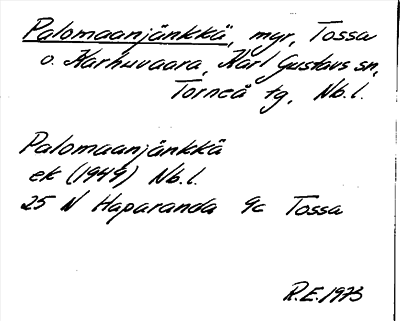 Palomaanjänkkä, myr, Tossa
o. Karhuvaara, Karl Gustavs sn,
Torneå tg, Nb.l.
Palomaanjänkkä
ek (1949) Nb.l.
25 N Haparanda 9c Tossa
R.E. 1973